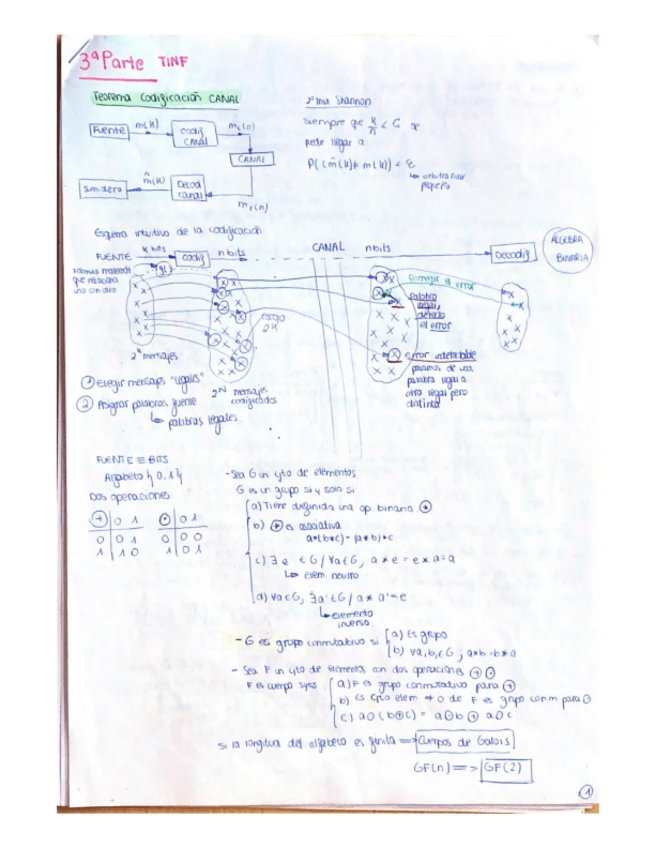 3ª Parte TINF
Teorema Codificación CANAL
2º tma Shannon
Fuente
m(k)
codif
CANAL
mt(n)
CANAL
Sumidero
m̂(k)
Decod
canal
mr(n)
siempre que k/n < C se
puede llegar a
P((m̂(k)≠ m(k)) < ε
arbitrariam
pequeño
Esquema intuitivo de la codificación
FUENTE
k bits
codif
n bits
CANAL
n bits
Decodif
ÁLGEBRA
BINARIA
que relaciona
uno con otro
g()
corregir el error
palabra
detecto
el error
2^k
2^k mensajes
2^N mensajes
codificados
error indetectable
pasamos de una
palabra legal a
otra legal pero
distinta
① Elegir mensajes "legales"
② Asignar palabras fuente
palabras legales.
FUENTE ≡ BITS
Alfabeto {0,1}
Dos operaciones
+ 0 1
0 0 1
1 1 0
· 0 1
0 0 0
1 0 1
- Sea G un cjto de elementos
G es un grupo si y solo si
a) Tiene definida una op. binaria *
b) * es asociativa
a*(b*c) = (a*b)*c
c) ∃ e ∈ G / ∀a∈G, a * e = e * a = a
elem neutro
d) ∀a∈G, ∃a'∈G / a * a' = e
elemento
inverso.
- G es grupo conmutativo si
a) Es grupo
b) ∀a,b∈G ; a*b = b*a
- Sea F un cjto de elementos con dos operaciones + ·
F es cuerpo syss.
a) F es grupo conmutativo para +
b) Es cjto elem ≠ 0 de F es grupo conm para ·
c) a⊙(b⊕c) = a⊙b ⊕ a⊙c
si la longitud del alfabeto es finita ⇒ Cuerpos de Galois
GF(n) ⇒ GF(2)
1